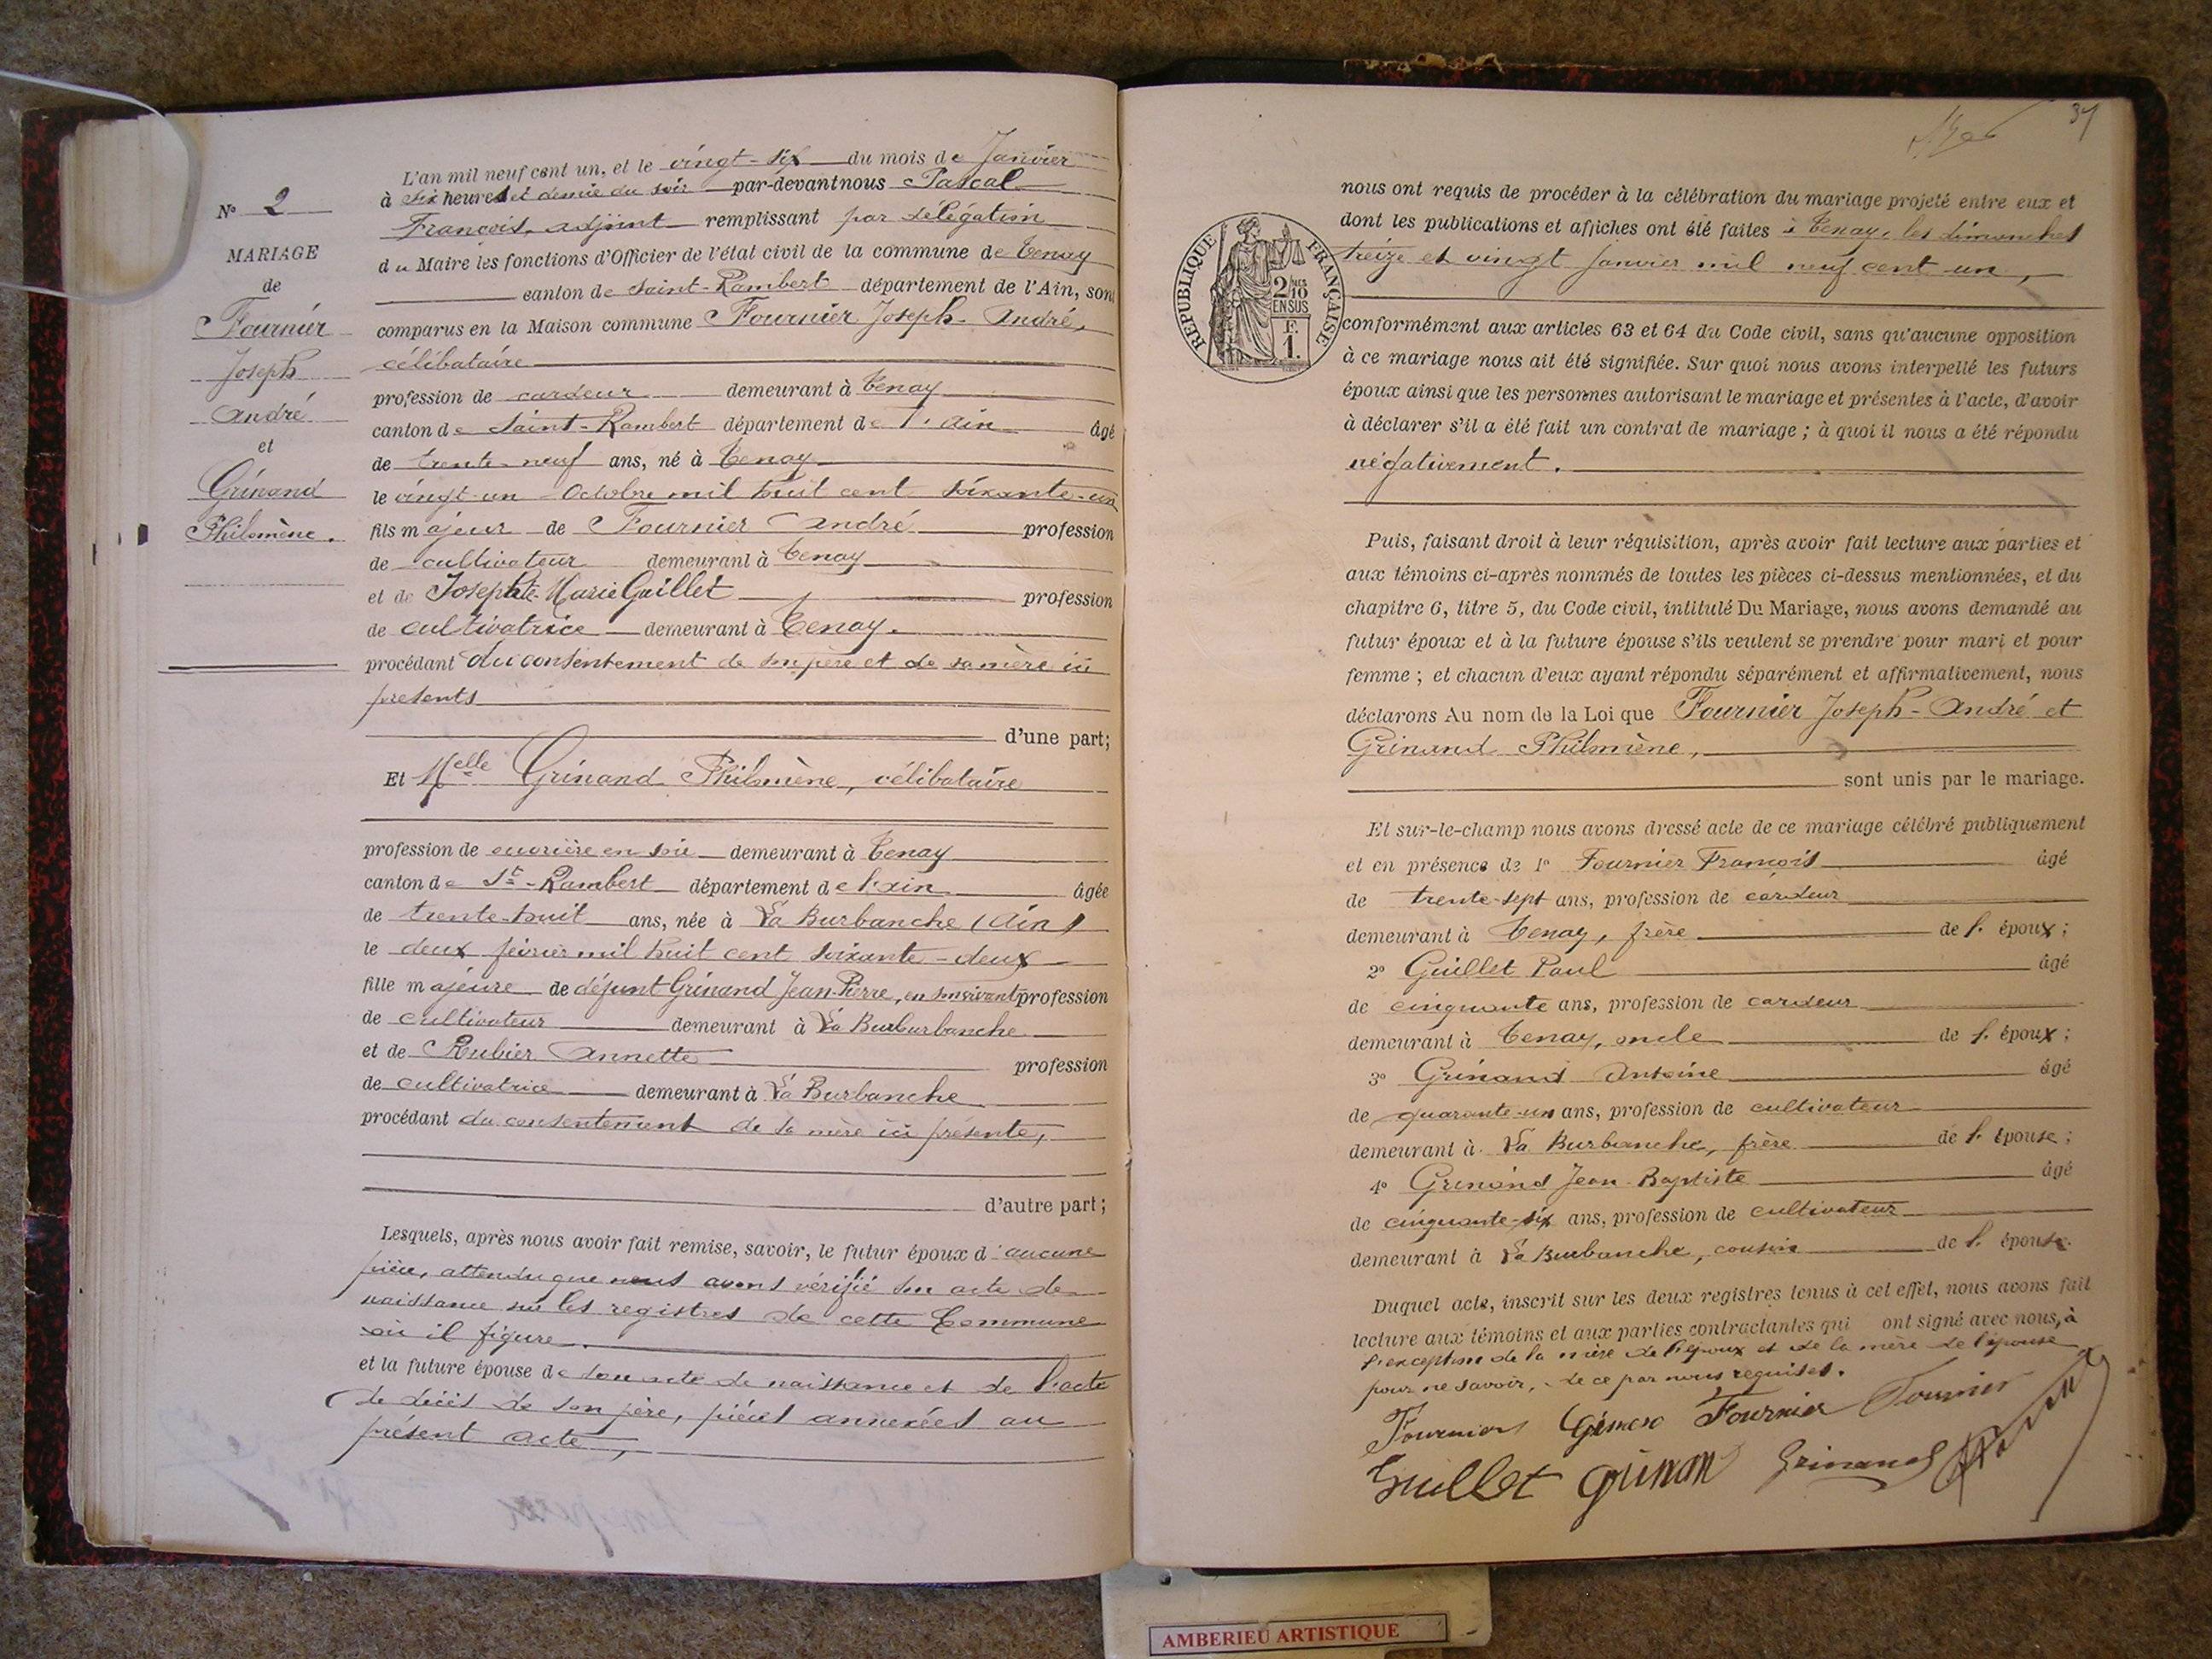 N° 2
MARIAGE
de
Fournier
Joseph
André
et
Grinand
Philomène.
L'an mil neuf cent un, et le vingt-six du mois de Janvier
à six heures et demie du soir par-devant nous Pascal
François, adjoint remplissant par délégation
du Maire les fonctions d'Officier de l'état civil de la commune de Tenay
canton de Saint-Rambert département de l'Ain, sont
comparus en la Maison commune Fournier Joseph-André,
célibataire
profession de cardeur demeurant à Tenay
canton de Saint-Rambert département de l'Ain âgé
de trente-neuf ans, né à Tenay
le vingt-un Octobre mil huit cent soixante-un
fils majeur de Fournier André profession
de cultivateur demeurant à Tenay
et de Josephte-Marie Guillet profession
de cultivatrice demeurant à Tenay.
procédant du consentement de son père et de sa mère ici
presents
d'une part;
Et Melle Grinand Philomène, célibataire
profession de ouvrière en soie demeurant à Tenay
canton de St-Rambert département de l'ain âgée
de trente-huit ans, née à La Burbanche (Ain)
le deux février mil huit cent soixante-deux
fille majeure de défunt Grinand Jean-Pierre, en son vivant profession
de cultivateur demeurant à La Burburbanche
et de Rubier Annette profession
de cultivatrice demeurant à La Burbanche
procédant du consentement de sa mère ici présente,
d'autre part;
Lesquels, après nous avoir fait remise, savoir, le futur époux d'aucune
pièce, attendu que nous avons vérifié son acte de
naissance sur les registres de cette Commune
où il figure.
et la future épouse de son acte de naissance et de l'acte
de décès de son père, pièces annexées au
présent acte,
37
RÉPUBLIQUE FRANÇAISE
2/10
EN SUS
F.
1.
nous ont requis de procéder à la célébration du mariage projeté entre eux et
dont les publications et affiches ont été faites à Tenay, les dimanches
treize et vingt Janvier mil neuf cent un,
conformément aux articles 63 et 64 du Code civil, sans qu'aucune opposition
à ce mariage nous ait été signifiée. Sur quoi nous avons interpellé les futurs
époux ainsi que les personnes autorisant le mariage et présentes à l'acte, d'avoir
à déclarer s'il a été fait un contrat de mariage ; à quoi il nous a été répondu
négativement.
Puis, faisant droit à leur réquisition, après avoir fait lecture aux parties et
aux témoins ci-après nommés de toutes les pièces ci-dessus mentionnées, et du
chapitre 6, titre 5, du Code civil, intitulé Du Mariage, nous avons demandé au
futur époux et à la future épouse s'ils veulent se prendre pour mari et pour
femme ; et chacun d'eux ayant répondu séparément et affirmativement, nous
déclarons Au nom de la Loi que Fournier Joseph-André et
Grinand Philomène,
sont unis par le mariage.
Et sur-le-champ nous avons dressé acte de ce mariage célébré publiquement
et en présence de 1° Fournier François âgé
de trente-sept ans, profession de cardeur
demeurant à Tenay, frère de l'époux ;
2° Guillet Paul âgé
de cinquante ans, profession de cardeur
demeurant à Tenay, oncle de l'époux ;
3° Grinand Antoine âgé
de quarante-un ans, profession de cultivateur
demeurant à La Burbanche, frère de l'épouse ;
4° Grinand Jean-Baptiste âgé
de cinquante-six ans, profession de cultivateur
demeurant à La Burbanche, cousin de l'épouse.
Duquel acte, inscrit sur les deux registres tenus à cet effet, nous avons fait
lecture aux témoins et aux parties contractantes qui ont signé avec nous, à
l'exception de la mère de l'époux et de la mère de l'épouse
pour ne savoir, de ce par nous requises.
Fournier Fournier Fournier
Guillet grinan Grinand
AMBERIEU ARTISTIQUE